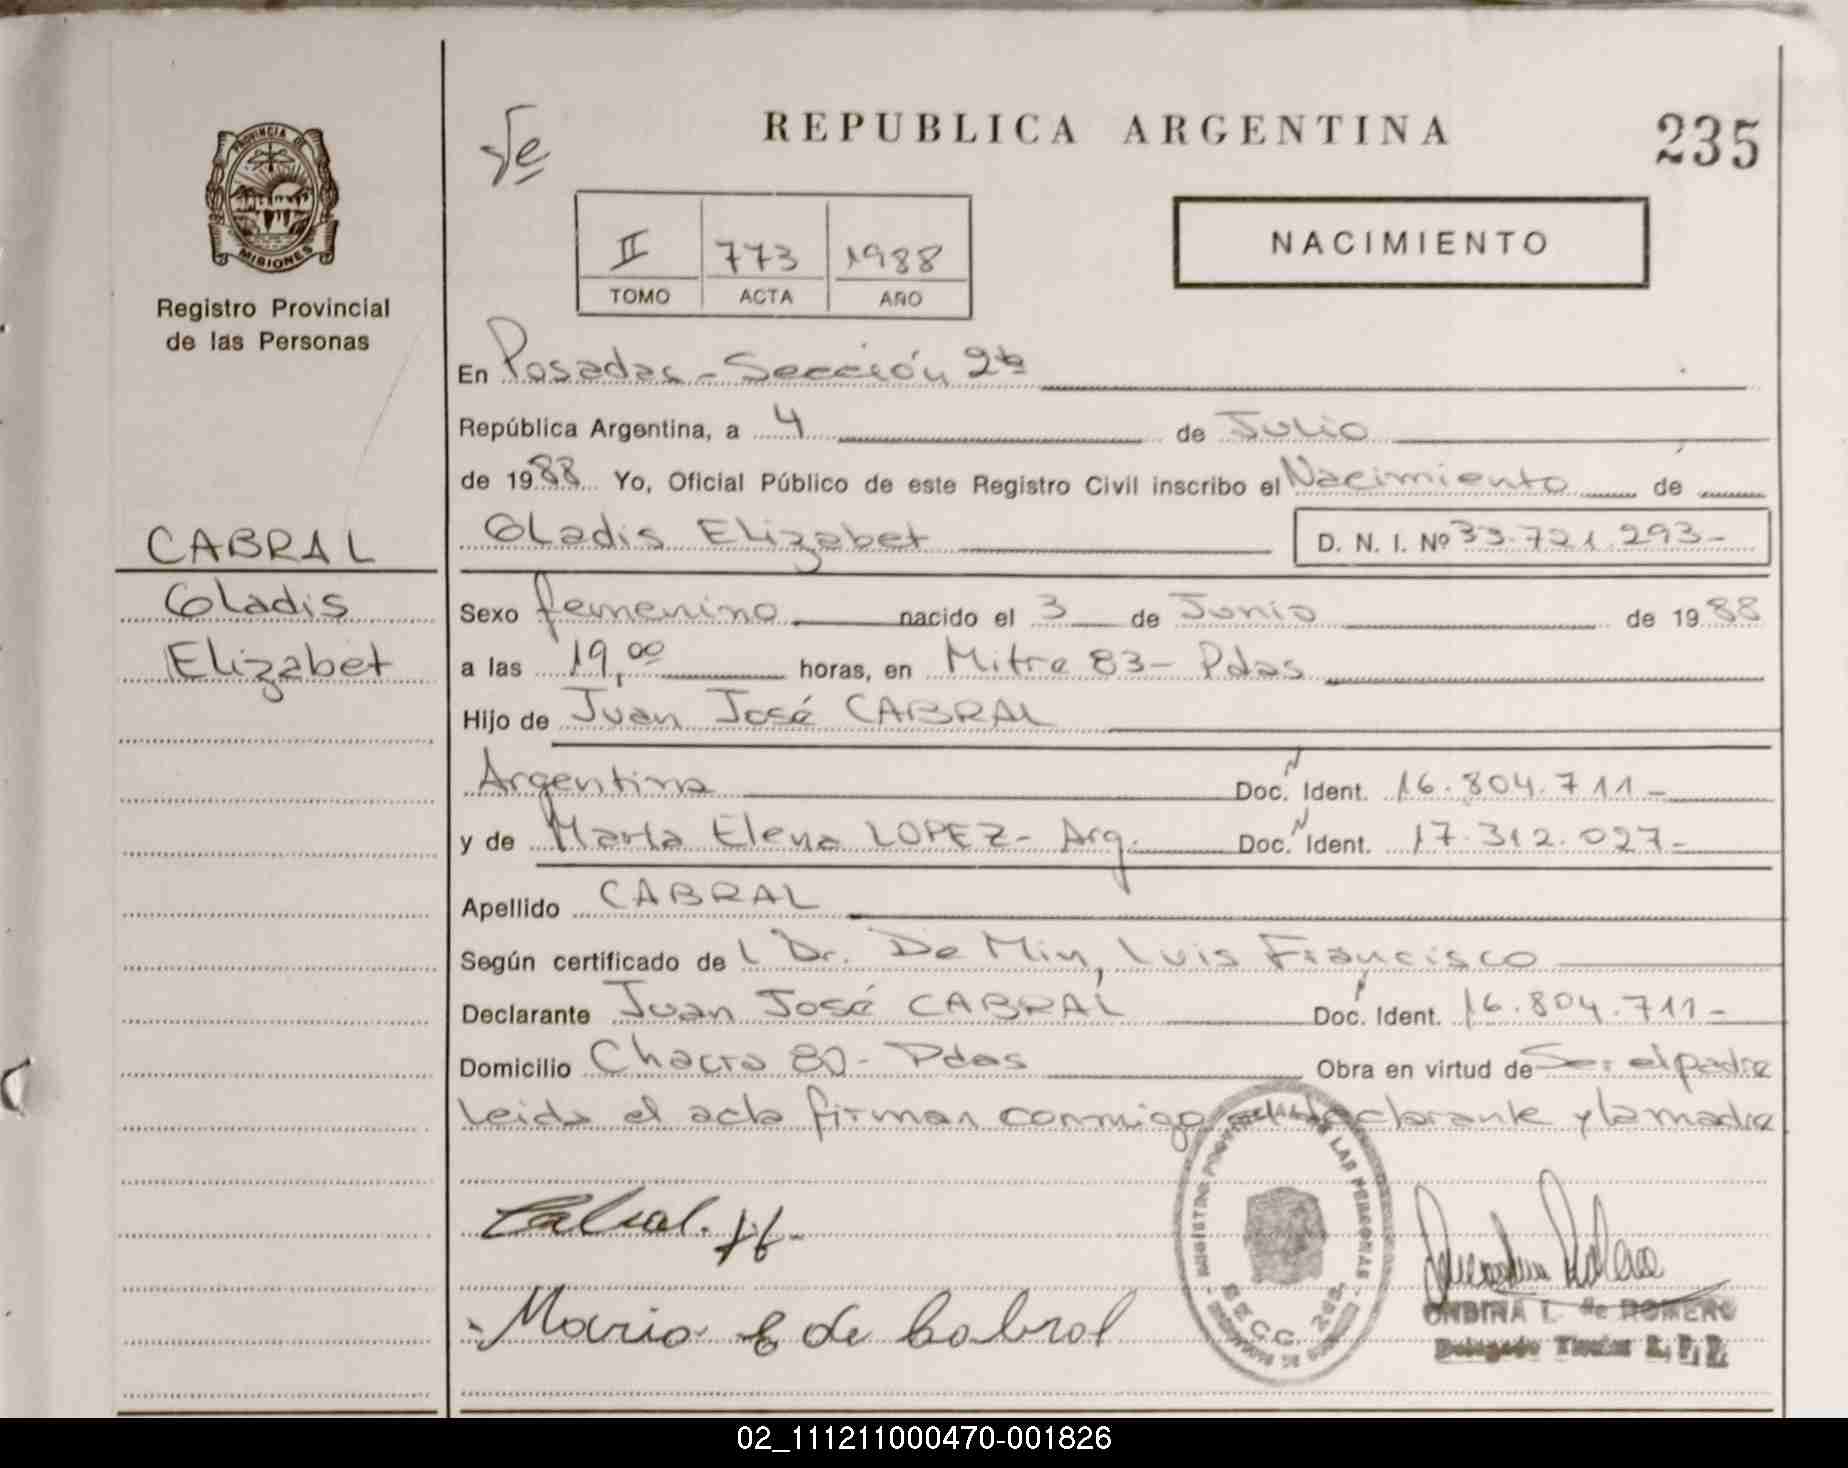 REPUBLICA ARGENTINA
235
PROVINCIA DE
MISIONES
Registro Provincial
de las Personas
II 773 1988
TOMO ACTA AÑO
NACIMIENTO
En Posadas - Sección 2ª
República Argentina, a 4 de Julio
de 1988 Yo, Oficial Público de este Registro Civil inscribo el Nacimiento de
CABRAL
Gladis Elizabet D. N. I. Nº 33.721.293-
Gladis
Elizabet
Sexo femenino nacido el 3 de Junio de 1988
a las 19,00 horas, en Mitre 83- Pdas
Hijo de Juan José CABRAL
Argentina Doc. Ident. 16.804.711-
y de María Elena LOPEZ- Arg. Doc. Ident. 17.312.027-
Apellido CABRAL
Según certificado del Dr. De Min, Luis Francisco
Declarante Juan José CABRAL Doc. Ident. 16.804.711-
Domicilio Chacra 80- Pdas Obra en virtud de Ser el padre
Leida el acta firman conmigo el declarante y la madre
Cabral. JJ-
Maria E de Cabral
REGISTRO PROVINCIAL DE LAS PERSONAS
ONDINA L. de ROMERO
Delegado Titular R. P. P.
02_111211000470-001826